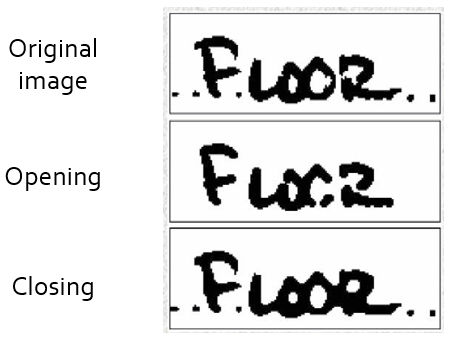 Original
image
FLOOR
Opening
FLOOR
Closing
FLOOR